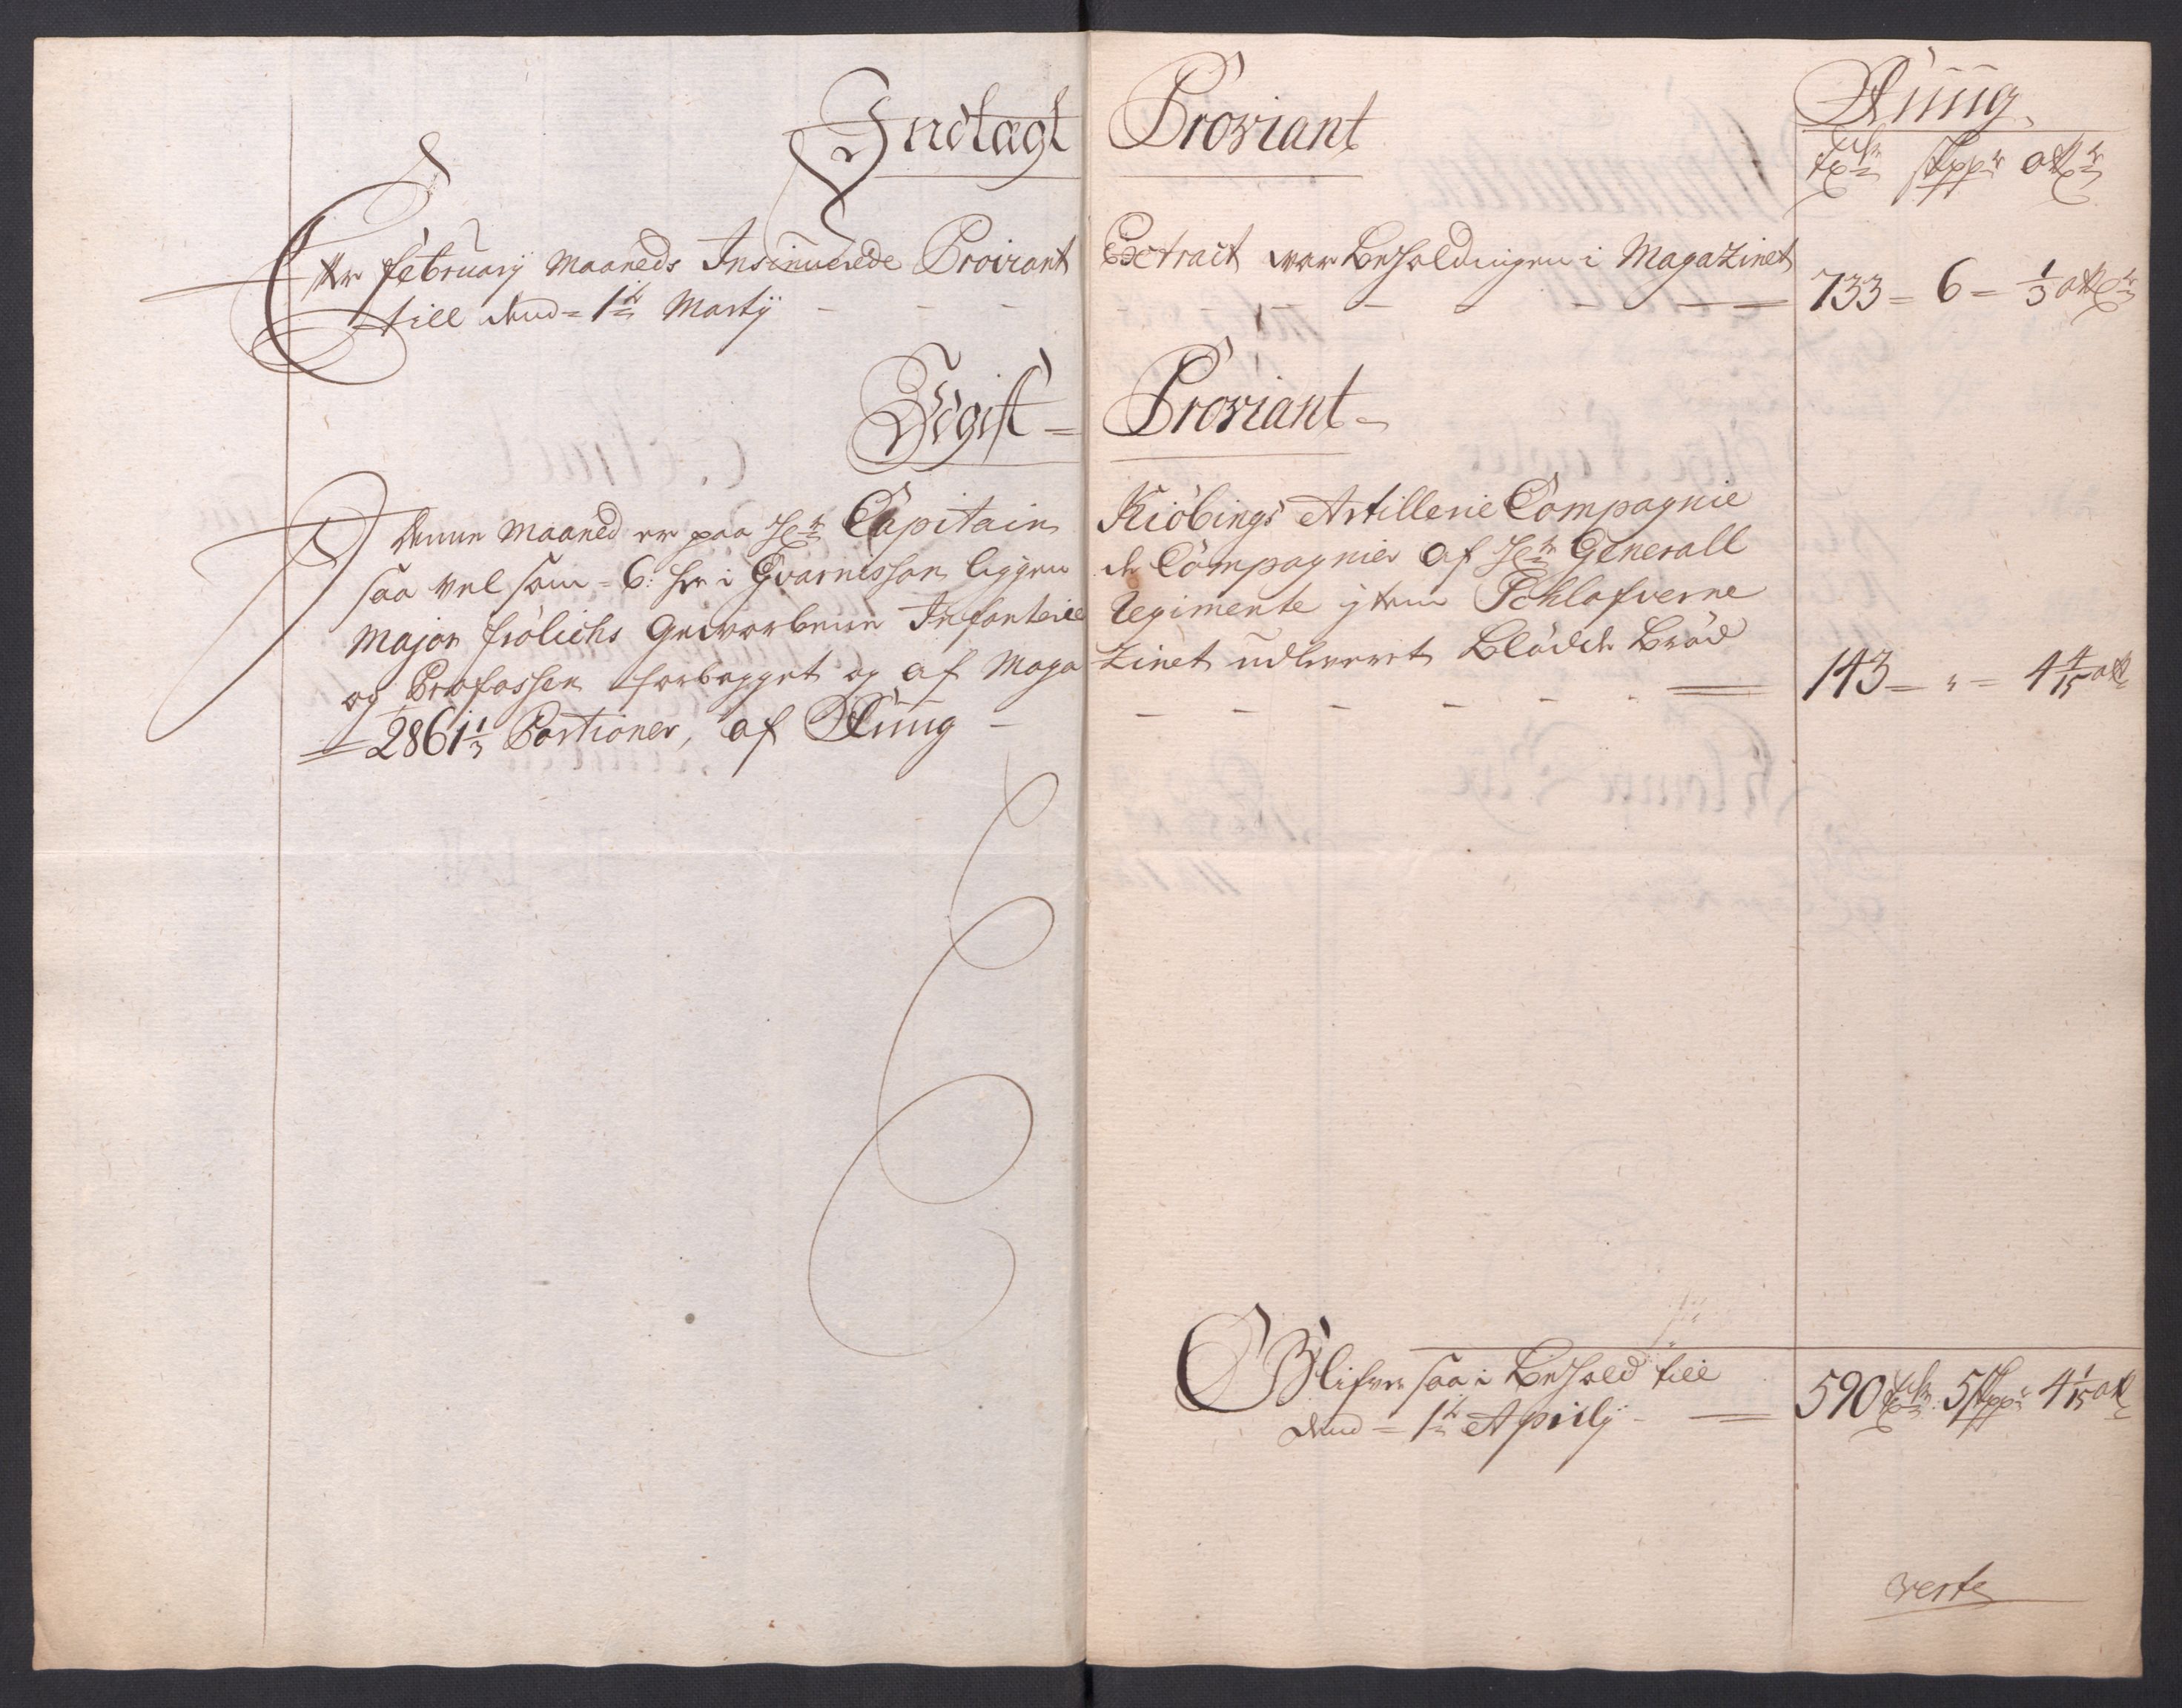 Indtægt Proviant
Rúúg
tdr skppr ottr
Efter february Maaneds Insinúerede Proviant Extract var beholdningen i Magazinet
till dend = 1te Martij - - - 733 = 6 = 1/3 ottr
Udgift = Proviant -
I denne Maaned er paa Hr Capitain Kiöbings Artillerie Compagnie
saa vel som = 6: her i Gvarnisson liggende Compagnier af Hr Generall
Major frölichs Gevorbene Infanterie Regimente jtem Schlafverne
og Profossen forbagget og af Magazinet udleveret Blödde Bröd
= 2861 1/3 Portioner, af Rúúg - 143 = " = 4 4/15 ott
Blifver saa i Behold till
dend = 1te Aprilij - 590 tdr 5 skppr 4 1/15 ott
verte